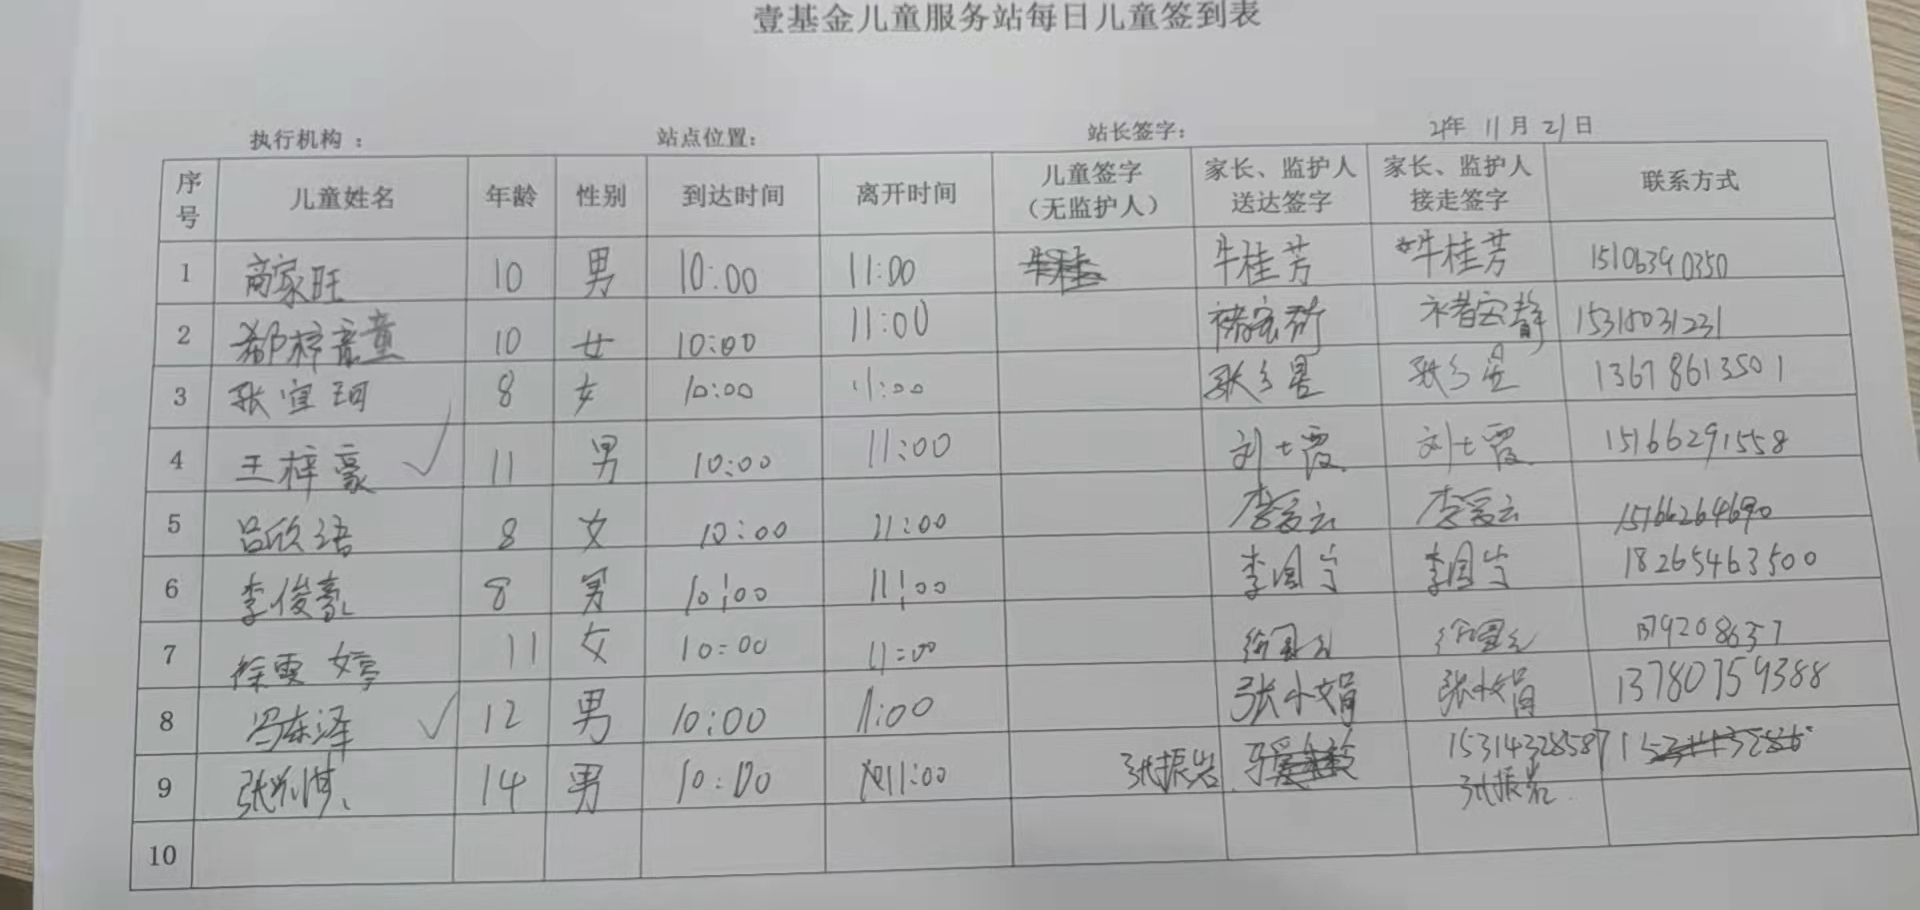 壹基金儿童服务站每日儿童签到表
执行机构： 站点位置： 站长签字： 21年 11月 21日
序号 儿童姓名 年龄 性别 到达时间 离开时间 儿童签字（无监护人） 家长、监护人送达签字 家长、监护人接走签字 联系方式
1 高家旺 10 男 10:00 11:00 牛桂芳 牛桂芳 15106390350
2 郗梓童 10 女 10:00 11:00 褚宏静 15318031231
3 张宜珂 8 女 10:00 11:00 13678613501
4 王梓豪 ✓ 11 男 10:00 11:00 刘士霞 刘士霞 15166291558
5 吕欣语 8 女 10:00 11:00 李爱云 李爱云 15166264690
6 李俊豪 8 男 10:00 11:00 李国宁 李国宁 18265463500
7 徐雯婷 11 女 10:00 11:00
8 冯东泽 ✓ 12 男 10:00 11:00 张小娟 张小娟 13780759388
9 14 男 10:00 11:00 张振岩 15314328587
张振岩
10